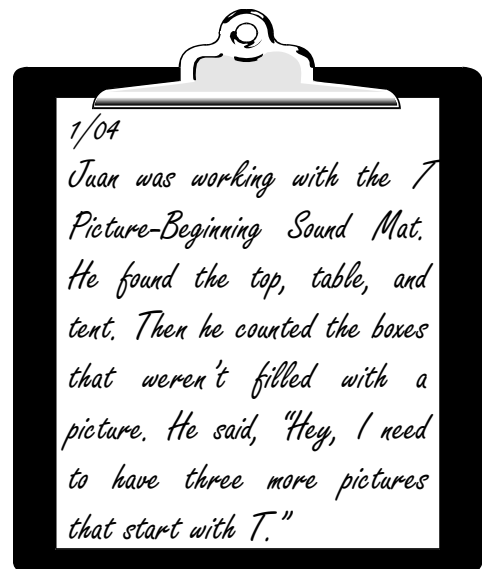 1/04
Juan was working with the T
Picture-Beginning Sound Mat.
He found the top, table, and
tent. Then he counted the boxes
that weren't filled with a
picture. He said, "Hey, I need
to have three more pictures
that start with T."